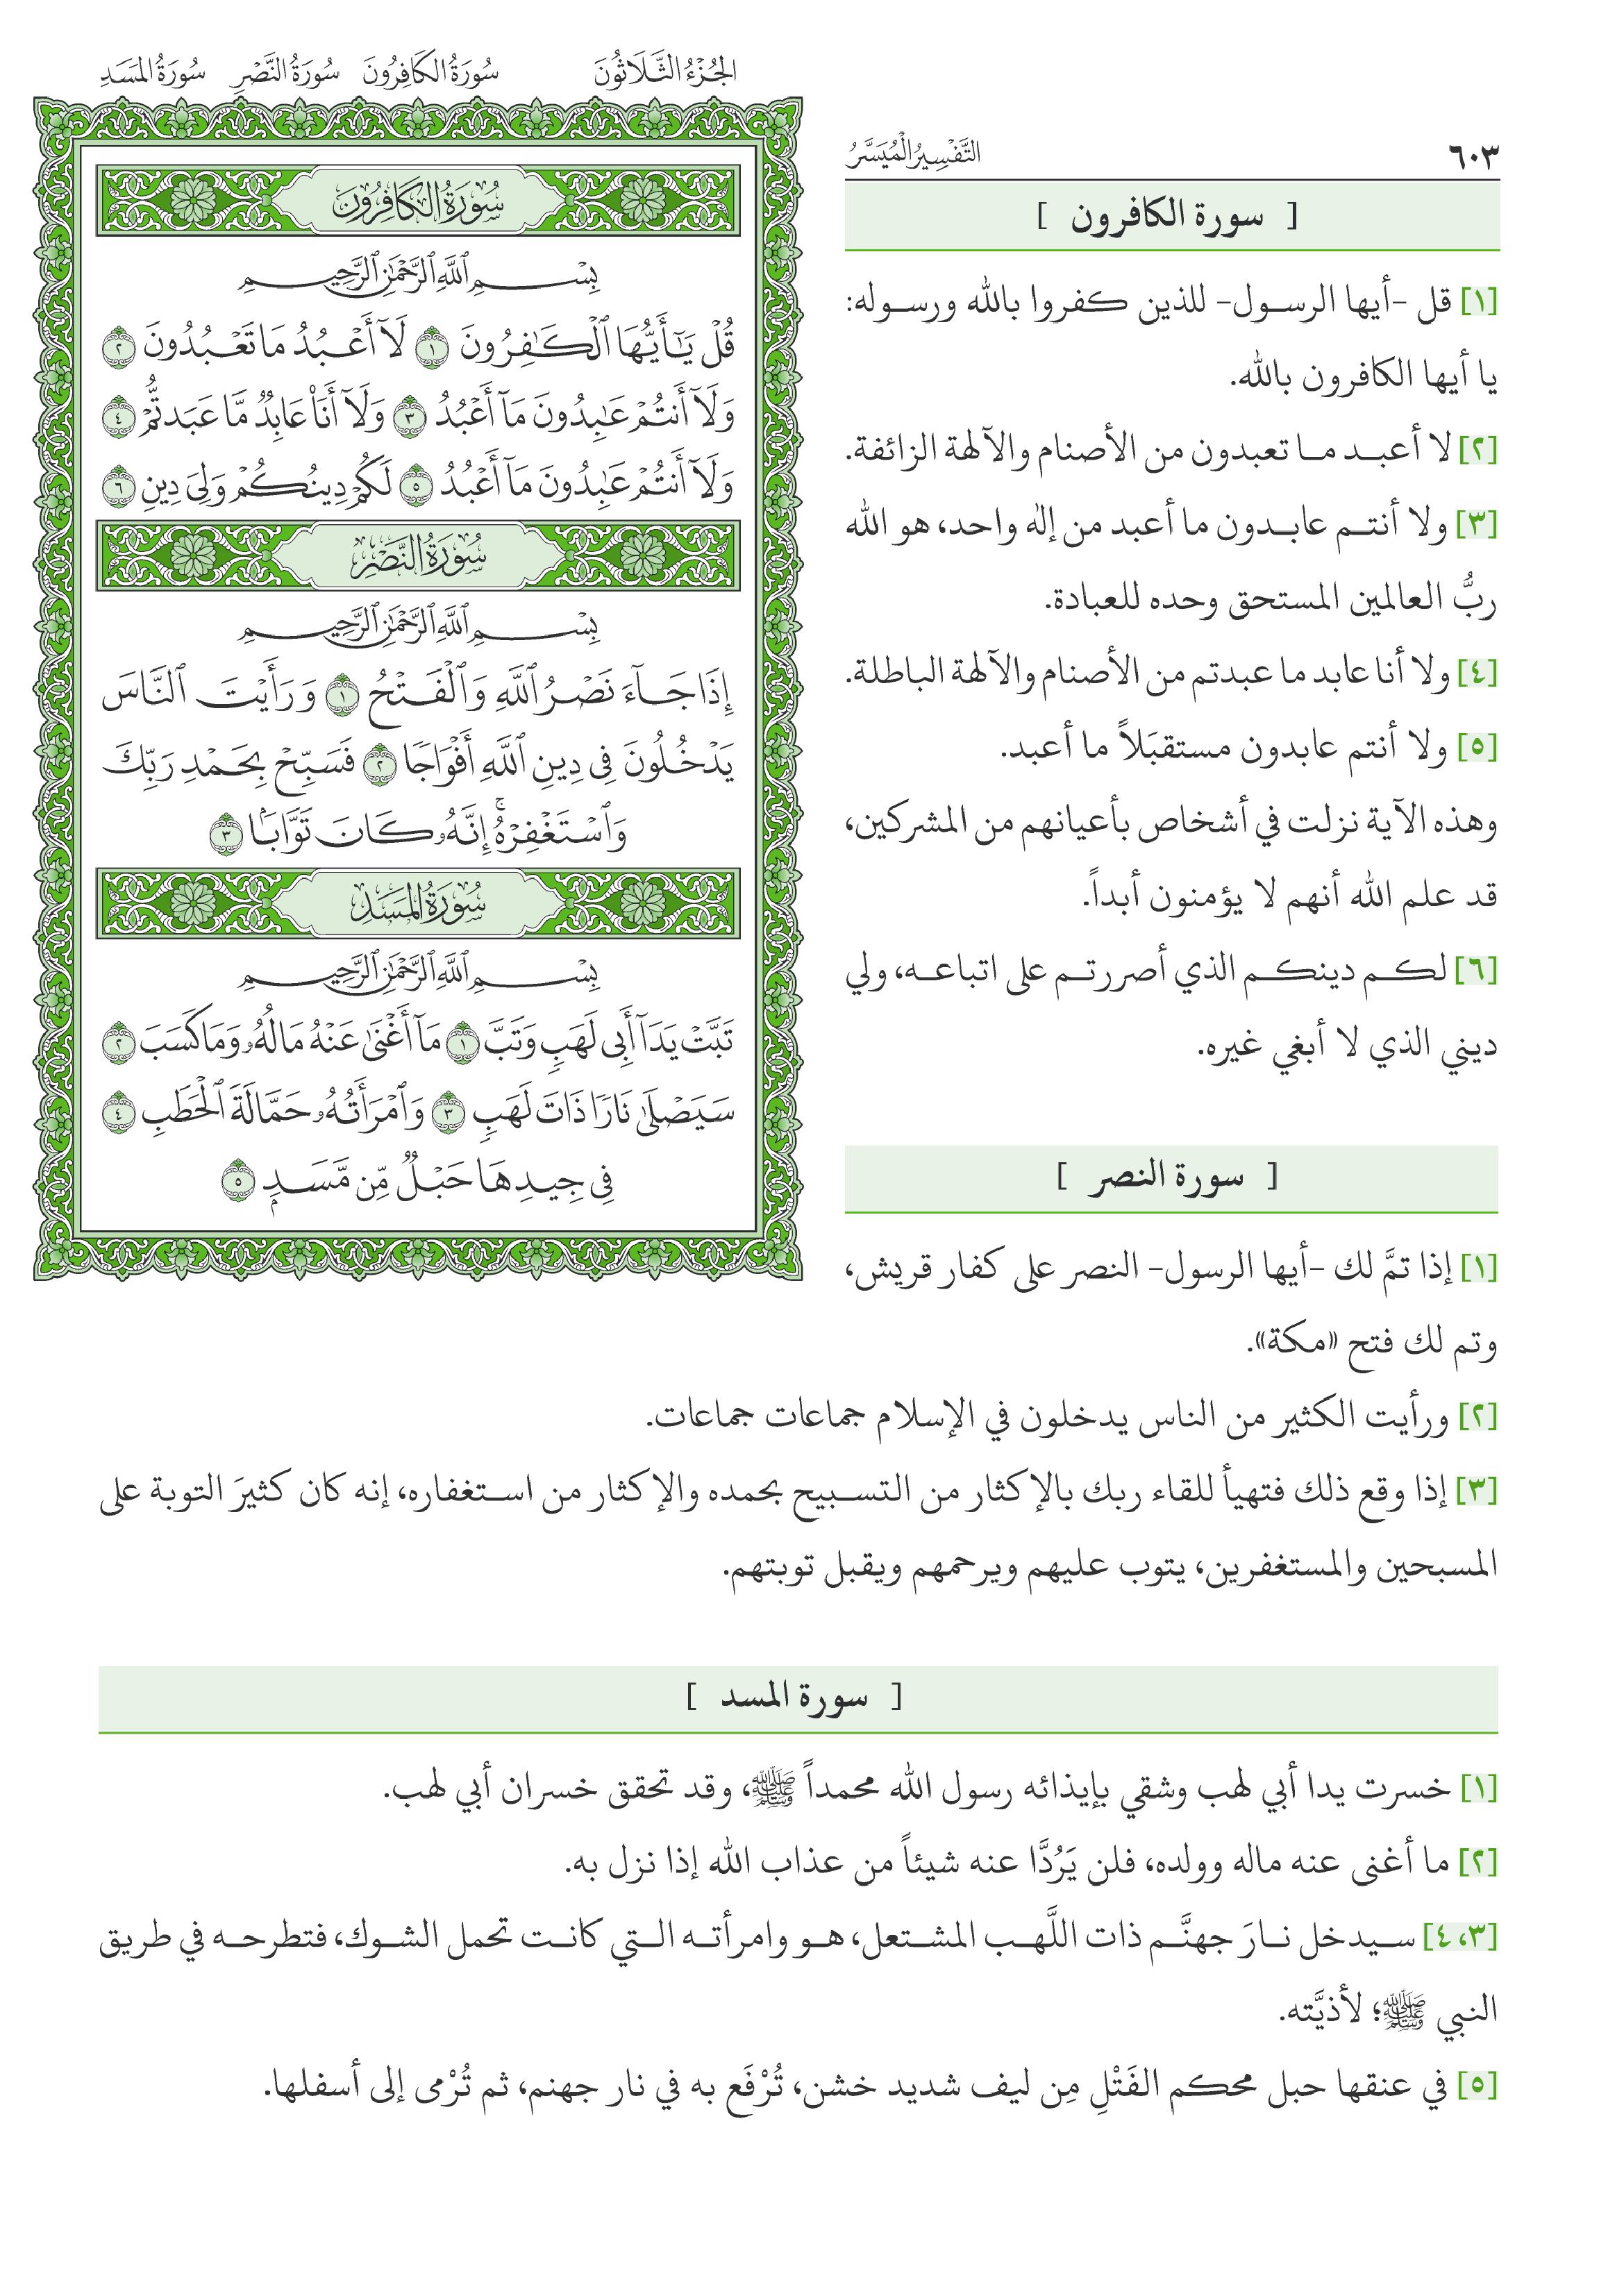 الجُزْءُ الثَّلَاثُونَ سُورَةُ الكَافِرُونَ سُورَةُ النَّصْرِ سُورَةُ المَسَدِ
سُورَةُ الكَافِرُونَ
بِسْمِ ٱللَّهِ ٱلرَّحْمَٰنِ ٱلرَّحِيمِ
قُلْ يَٰٓأَيُّهَا ٱلْكَٰفِرُونَ ١ لَآ أَعْبُدُ مَا تَعْبُدُونَ ٢
وَلَآ أَنتُمْ عَٰبِدُونَ مَآ أَعْبُدُ ٣ وَلَآ أَنَا۠ عَابِدٌ مَّا عَبَدتُّمْ ٤
وَلَآ أَنتُمْ عَٰبِدُونَ مَآ أَعْبُدُ ٥ لَكُمْ دِينُكُمْ وَلِىَ دِينِ ٦
سُورَةُ النَّصْرِ
بِسْمِ ٱللَّهِ ٱلرَّحْمَٰنِ ٱلرَّحِيمِ
إِذَا جَآءَ نَصْرُ ٱللَّهِ وَٱلْفَتْحُ ١ وَرَأَيْتَ ٱلنَّاسَ
يَدْخُلُونَ فِى دِينِ ٱللَّهِ أَفْوَاجًا ٢ فَسَبِّحْ بِحَمْدِ رَبِّكَ
وَٱسْتَغْفِرْهُ ۚ إِنَّهُۥ كَانَ تَوَّابًۢا ٣
سُورَةُ المَسَدِ
بِسْمِ ٱللَّهِ ٱلرَّحْمَٰنِ ٱلرَّحِيمِ
تَبَّتْ يَدَآ أَبِى لَهَبٍ وَتَبَّ ١ مَآ أَغْنَىٰ عَنْهُ مَالُهُۥ وَمَا كَسَبَ ٢
سَيَصْلَىٰ نَارًا ذَاتَ لَهَبٍ ٣ وَٱمْرَأَتُهُۥ حَمَّالَةَ ٱلْحَطَبِ ٤
فِى جِيدِهَا حَبْلٌ مِّن مَّسَدٍۭ ٥
٦٠٣ التَّفْسِيرُ الْمُيَسَّرُ
[ سورة الكافرون ]
[١] قل -أيها الرسول- للذين كفروا بالله ورسوله:
يا أيها الكافرون بالله.
[٢] لا أعبد ما تعبدون من الأصنام والآلهة الزائفة.
[٣] ولا أنتم عابدون ما أعبد من إله واحد، هو الله
ربُّ العالمين المستحق وحده للعبادة.
[٤] ولا أنا عابد ما عبدتم من الأصنام والآلهة الباطلة.
[٥] ولا أنتم عابدون مستقبَلاً ما أعبد.
وهذه الآية نزلت في أشخاص بأعيانهم من المشركين،
قد علم الله أنهم لا يؤمنون أبداً.
[٦] لكم دينكم الذي أصررتم على اتباعه، ولي
ديني الذي لا أبغي غيره.
[ سورة النصر ]
[١] إذا تمَّ لك -أيها الرسول- النصر على كفار قريش،
وتم لك فتح «مكة».
[٢] ورأيت الكثير من الناس يدخلون في الإسلام جماعات جماعات.
[٣] إذا وقع ذلك فتهيأ للقاء ربك بالإكثار من التسبيح بحمده والإكثار من استغفاره، إنه كان كثيرَ التوبة على
المسبحين والمستغفرين، يتوب عليهم ويرحمهم ويقبل توبتهم.
[ سورة المسد ]
[١] خسرت يدا أبي لهب وشقي بإيذائه رسول الله محمداً ﷺ، وقد تحقق خسران أبي لهب.
[٢] ما أغنى عنه ماله وولده، فلن يَرُدَّا عنه شيئاً من عذاب الله إذا نزل به.
[٣، ٤] سيدخل نارَ جهنَّم ذات اللَّهب المشتعل، هو وامرأته التي كانت تحمل الشوك، فتطرحه في طريق
النبي ﷺ؛ لأذيَّته.
[٥] في عنقها حبل محكم الفَتْلِ مِن ليف شديد خشن، تُرْفَع به في نار جهنم، ثم تُرْمى إلى أسفلها.